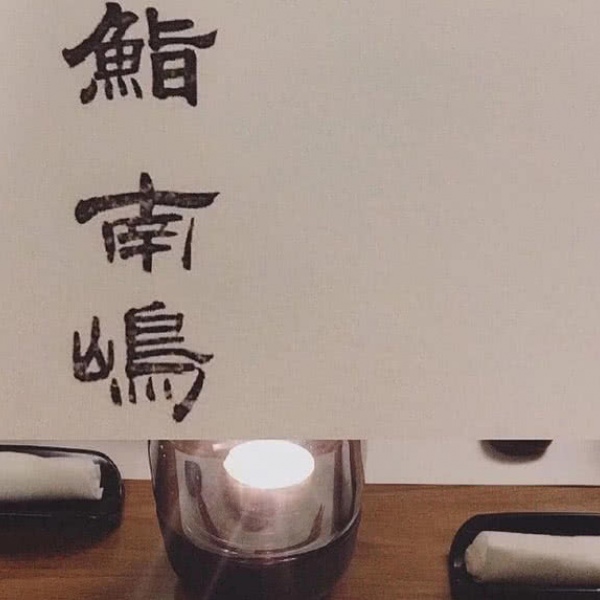 鮨南嶋